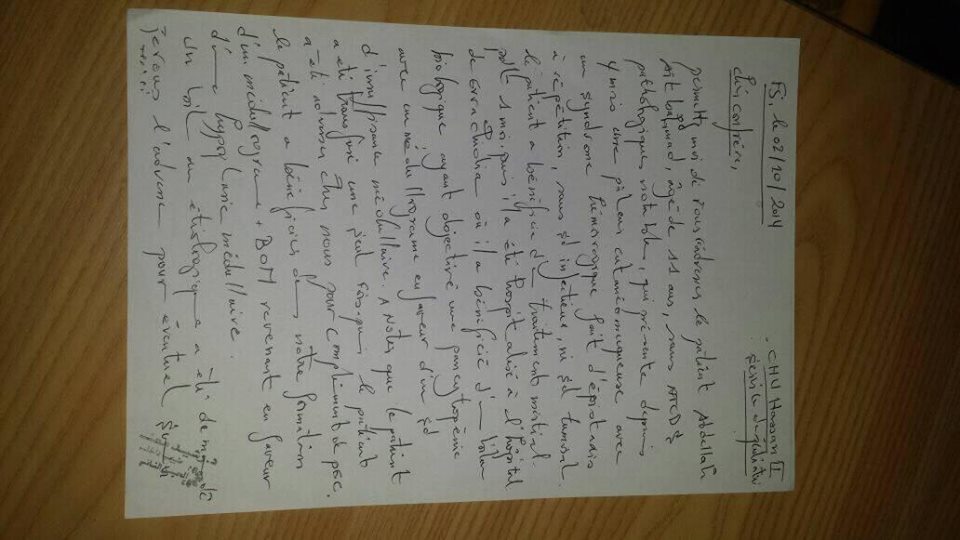 FS. le 02/10/2014
CHU Hassan II
Service de pédiatrie
Cher confrère,
permettez moi de vous adresser le patient Abdellah
âgé de 11 ans, sans ATCD
pathologiques notable, qui présente depuis
4 mois une pâleur cutanéomuqueuse avec
un syndrome hémorragique fait d'épistaxis
à répétition, sans sd infectieux, ni sd tumoral.
le patient a bénéficié d'un traitement martial
pdt 1 mois puis il a été hospitalisé à l'hôpital
où il a bénéficié d'un bilan
biologique ayant objectivé une pancytopénie
avec un médullogramme en faveur d'un sd
d'insuffisance médullaire. A Noter que le patient
a été transfusé une seul fois puis le patient
a été adressé chez nous pour complément de pec.
le patient a bénéficié dans notre formation
d'un médullogramme + BOM revenant en faveur
d'une hypoplasie médullaire.
Un bilan étiologique a été demandé
Je vous l'adresse pour éventuel
merci